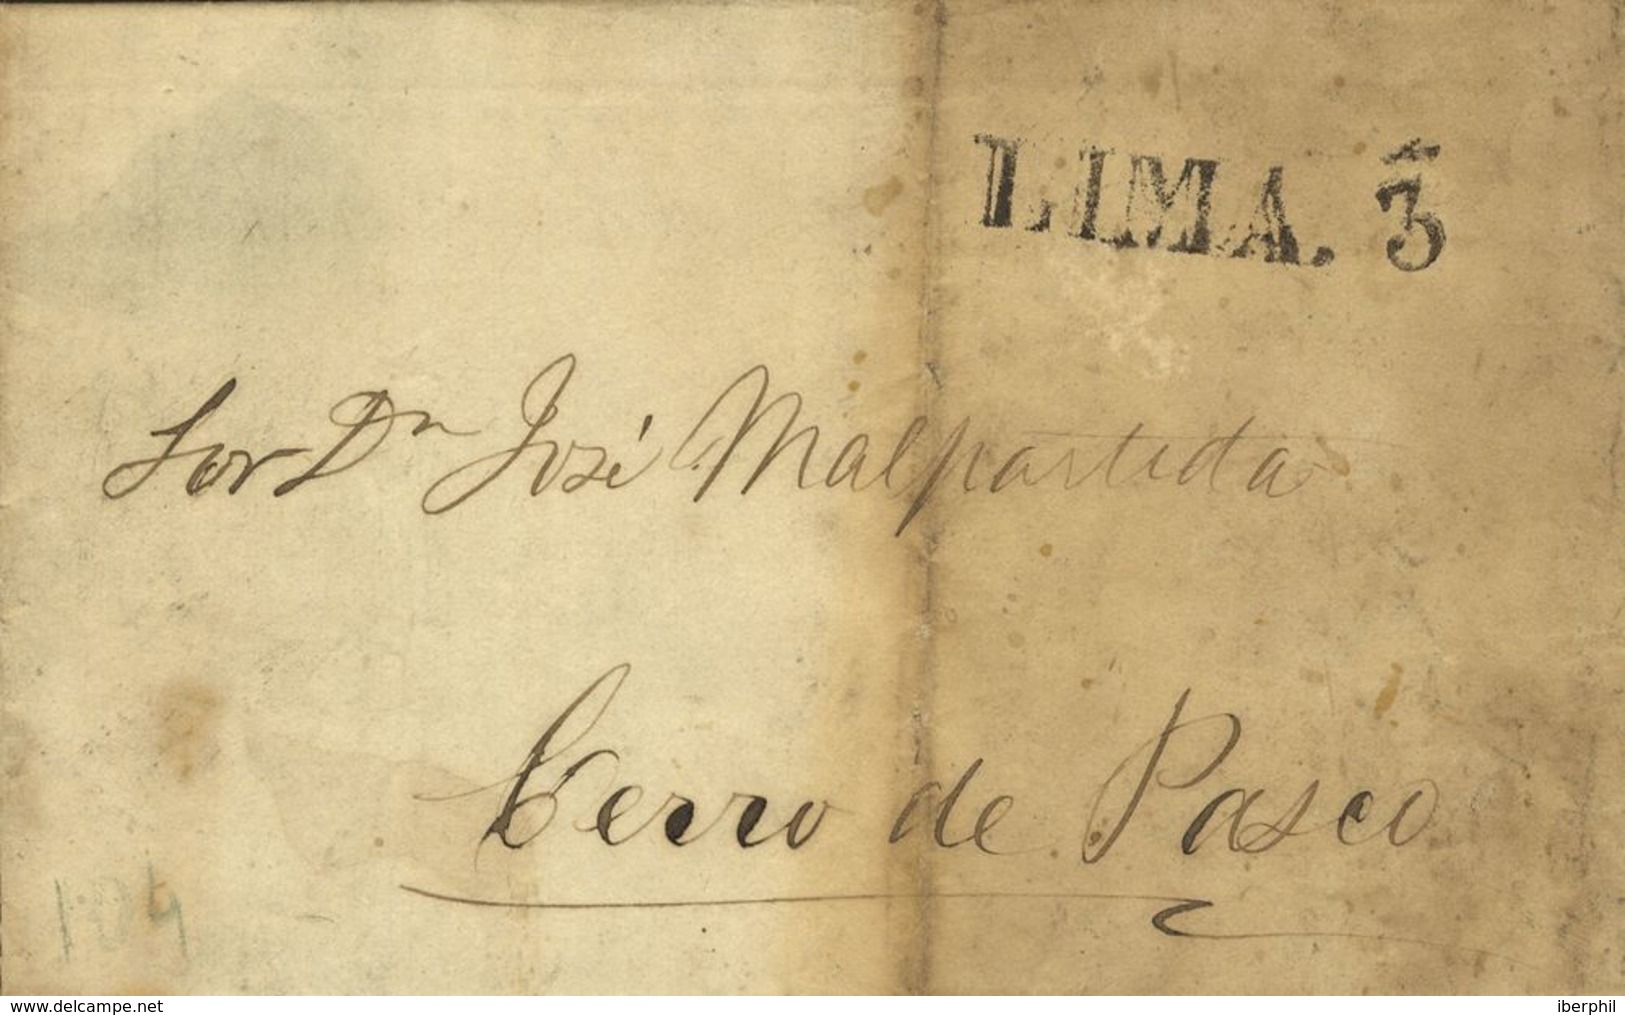 LIMA. 3
Sor Dn José Malpartida
Cerro de Pasco
184
www.delcampe.net
iberphil